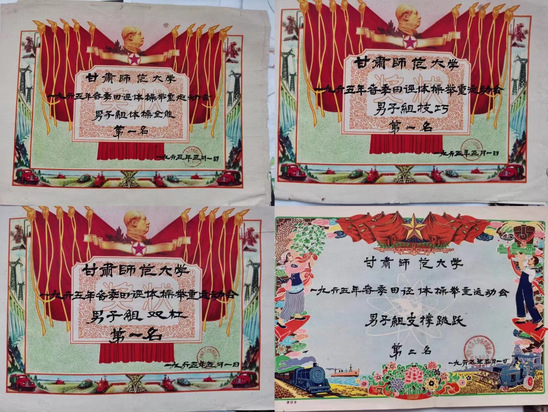 甘肃師范大学
一九六五年春季田径体操举重运动会
男子组体操全能
第一名
一九六五年五月一日
甘肃師范大学
一九六五年春季田径体操举重运动会
男子组技巧
第一名
一九六五年五月一日
甘肃師范大学
一九六五年春季田径体操举重运动会
男子组双杠
第一名
一九六五年五月一日
甘肃師范大学
一九六五年春季田径体操举重运动会
男子组支撑跳跃
第二名
一九六五年五月一日